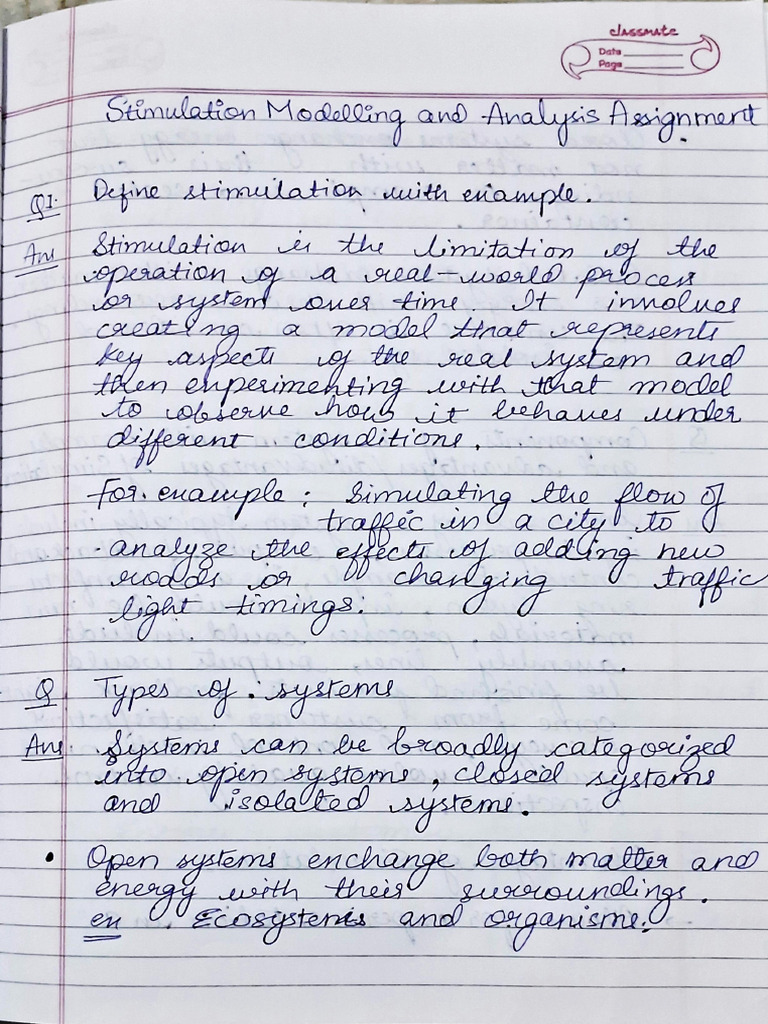 classmate
Date
Page
Stimulation Modelling and Analysis Assignment.
Q1. Define stimulation with example.
Ans Stimulation is the limitation of the
operation of a real-world process
or system over time. It involves
creating a model that represents
key aspects of the real system and
then experimenting with that model
to observe how it behaves under
different conditions.
For example: Simulating the flow of
traffic in a city to
analyze the effects of adding new
roads or changing traffic
light timings.
Q Types of systems
Ans Systems can be broadly categorized
into open systems, closed systems
and isolated systems.
• Open systems exchange both matter and
energy with their surroundings.
ex Ecosystems and organisms.